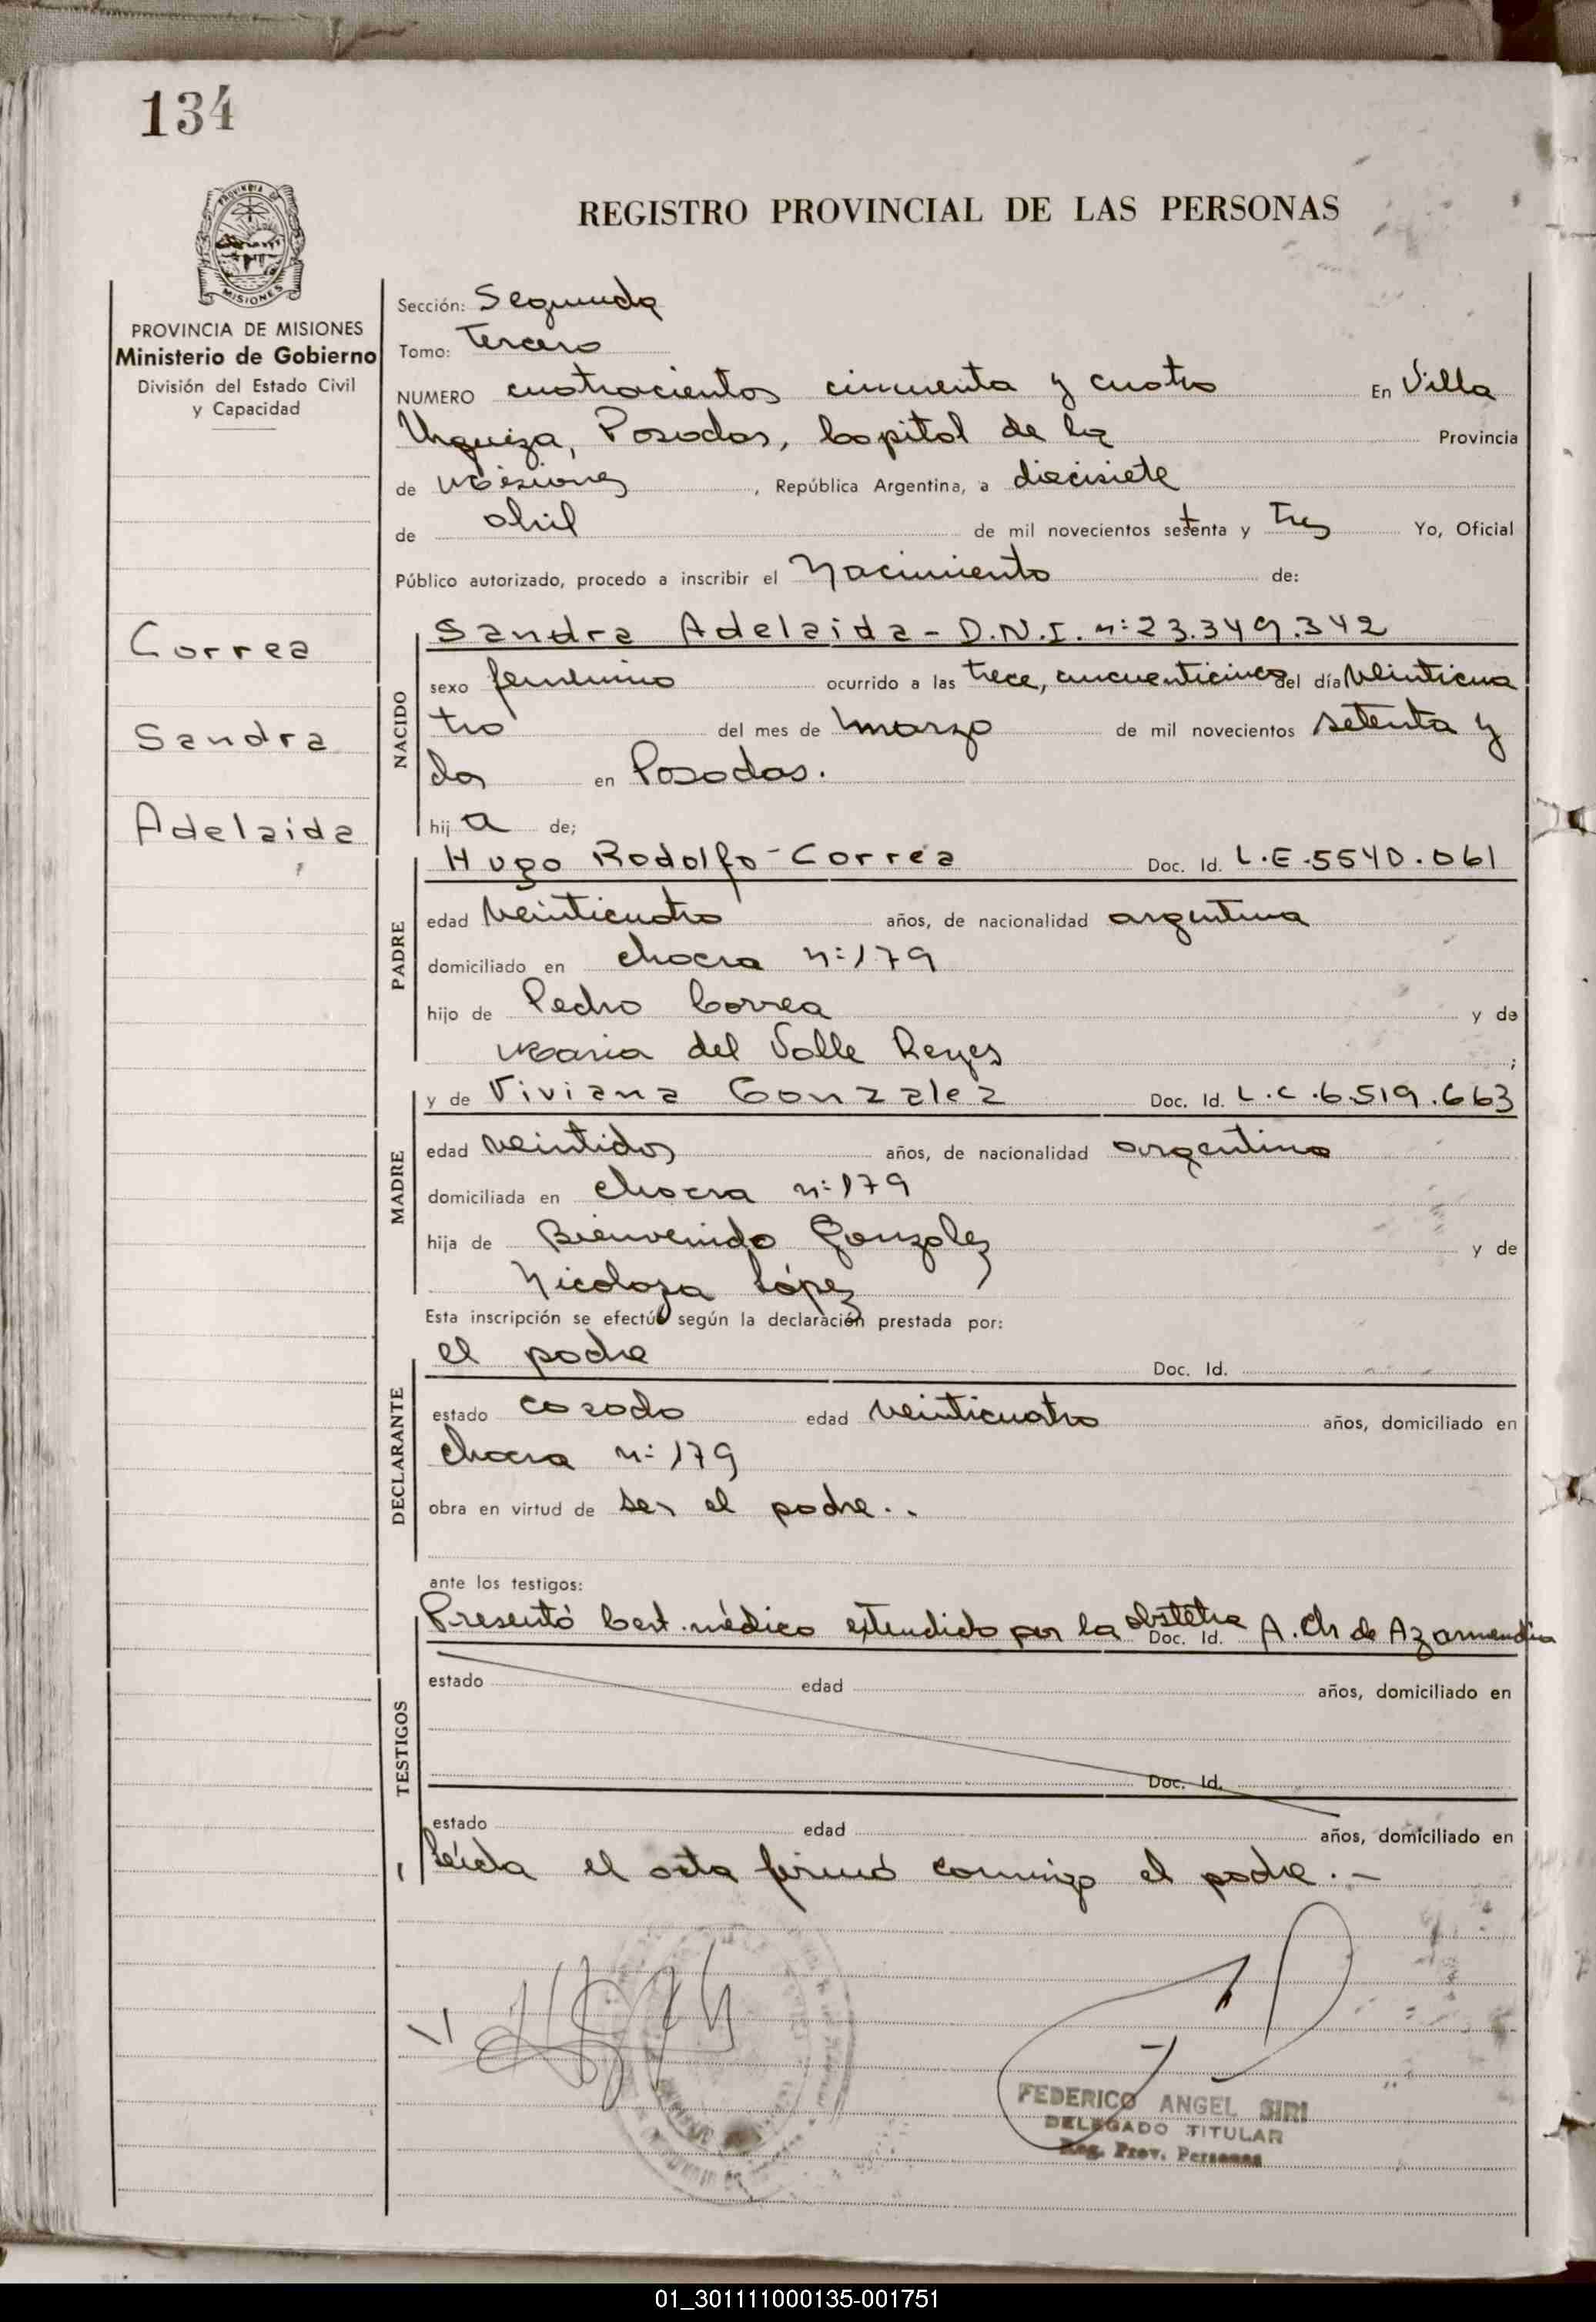 134
PROVINCIA DE
MISIONES
REGISTRO PROVINCIAL DE LAS PERSONAS
PROVINCIA DE MISIONES
Ministerio de Gobierno
División del Estado Civil
y Capacidad
Correa
Sandra
Adelaida
Sección: Segunda
Tomo: Tercero
NUMERO cuatrocientos cincuenta y cuatro En Villa
Urquiza, Posadas, Capital de la Provincia
de Misiones, República Argentina, a diecisiete
de abril de mil novecientos setenta y tres Yo, Oficial
Público autorizado, procedo a inscribir el Nacimiento de:
NACIDO
Sandra Adelaida - D.N.I. n: 23.349.342
sexo femenino ocurrido a las trece, cincuenticinco del día veinticua
tro del mes de marzo de mil novecientos setenta y
dos en Posadas.
hij a de;
PADRE
Hugo Rodolfo Correa Doc. Id. L.E. 5540.061
edad veinticuatro años, de nacionalidad argentina
domiciliado en chacra n: 179
hijo de Pedro Correa y de
Maria del Valle Reyes ;
MADRE
y de Viviana Gonzalez Doc. Id. L.C. 6.519.663
edad veintidos años, de nacionalidad argentina
domiciliada en chacra n: 179
hija de Bienvenido Gonzalez y de
Nicolaza López
Esta inscripción se efectúa según la declaración prestada por:
DECLARANTE
el padre Doc. Id.
estado casado edad veinticuatro años, domiciliado en
chacra n: 179
obra en virtud de ser el padre..
ante los testigos:
TESTIGOS
Presentó Cert. médico extendido por la obstetra Doc. Id. A. Ch de Azamendia
estado edad años, domiciliado en
Doc. Id.
estado edad años, domiciliado en
Leída el acta firmó conmigo el padre.-
FEDERICO ANGEL SIRI
DELEGADO TITULAR
Reg. Prov. Personas
01_301111000135-001751